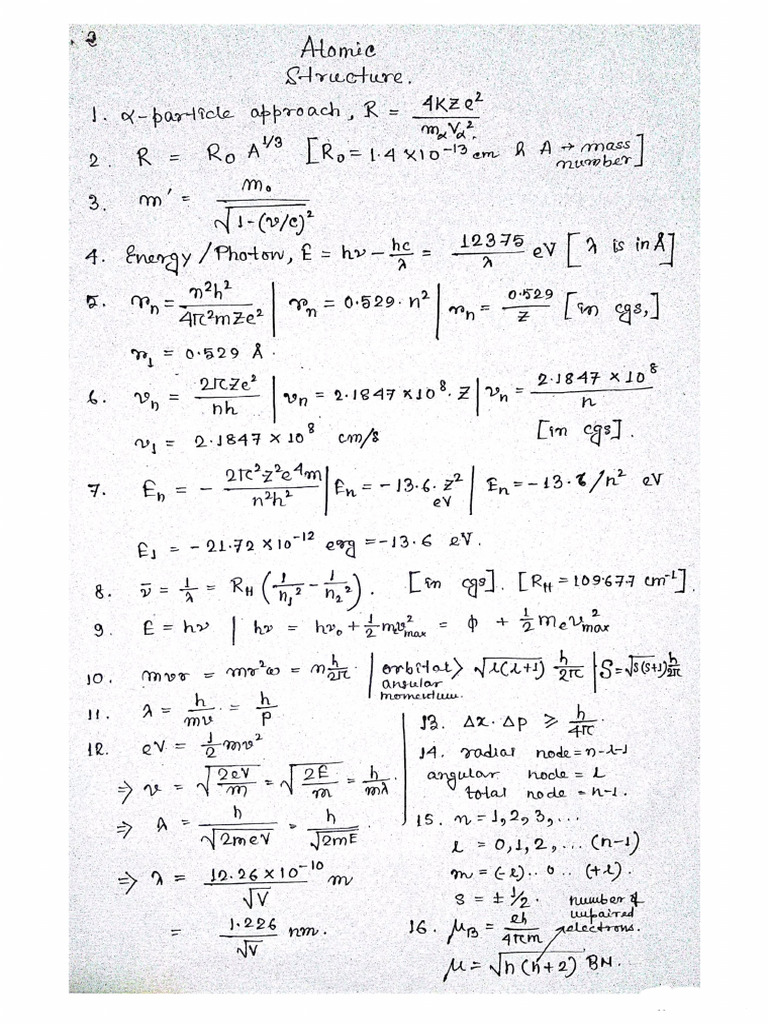 2
Atomic
Structure.
1. α-particle approach, R = 4KZe²/mαVα².
2. R = R₀ A^1/3 [R₀ = 1.4 × 10⁻¹³ cm & A → mass number]
3. m' = m₀/√1-(v/c)²
4. Energy/Photon, E = hν - hc/λ = 12375/λ eV [λ is in Å]
5. rₙ = n²h²/4π²mZe² | rₙ = 0.529. n² | rₙ = 0.529/Z [in cgs,]
r₁ = 0.529 Å.
6. vₙ = 2πZe²/nh | vₙ = 2.1847 × 10⁸. Z | vₙ = 2.1847 × 10⁸/n
v₁ = 2.1847 × 10⁸ cm/s [in cgs].
7. Eₙ = - 2π²Z²e⁴m/n²h² | Eₙ = -13.6. Z² eV | Eₙ = -13.6/n² eV
E₁ = -21.72 × 10⁻¹² erg = -13.6 eV.
8. ν̄ = 1/λ = R_H (1/n₁² - 1/n₂²). [in cgs]. [R_H = 109677 cm⁻¹].
9. E = hν | hν = hν₀ + 1/2 mv²max = ϕ + 1/2 mₑv²max
10. mvr = mr²ω = n h/2π. | orbital angular momentum. > √l(l+1) h/2π | S = √s(s+1) h/2π
11. λ = h/mv . = h/p
12. eV = 1/2 mv²
⇒ v = √2eV/m = √2E/m = h/mλ.
⇒ λ = h/√2meV = h/√2mE.
⇒ λ = 12.26 × 10⁻¹⁰/√V m
= 1.226/√V nm.
13. Δx. Δp ≥ h/4π.
14. radial node = n-l-1
angular node = l
total node = n-1.
15. n = 1, 2, 3, ...
l = 0, 1, 2, ... (n-1)
m = (-l) .. 0 .. (+l).
s = ± 1/2.
16. μ_B = eh/4πm
number of unpaired electrons.
μ = √n(n+2) BN.